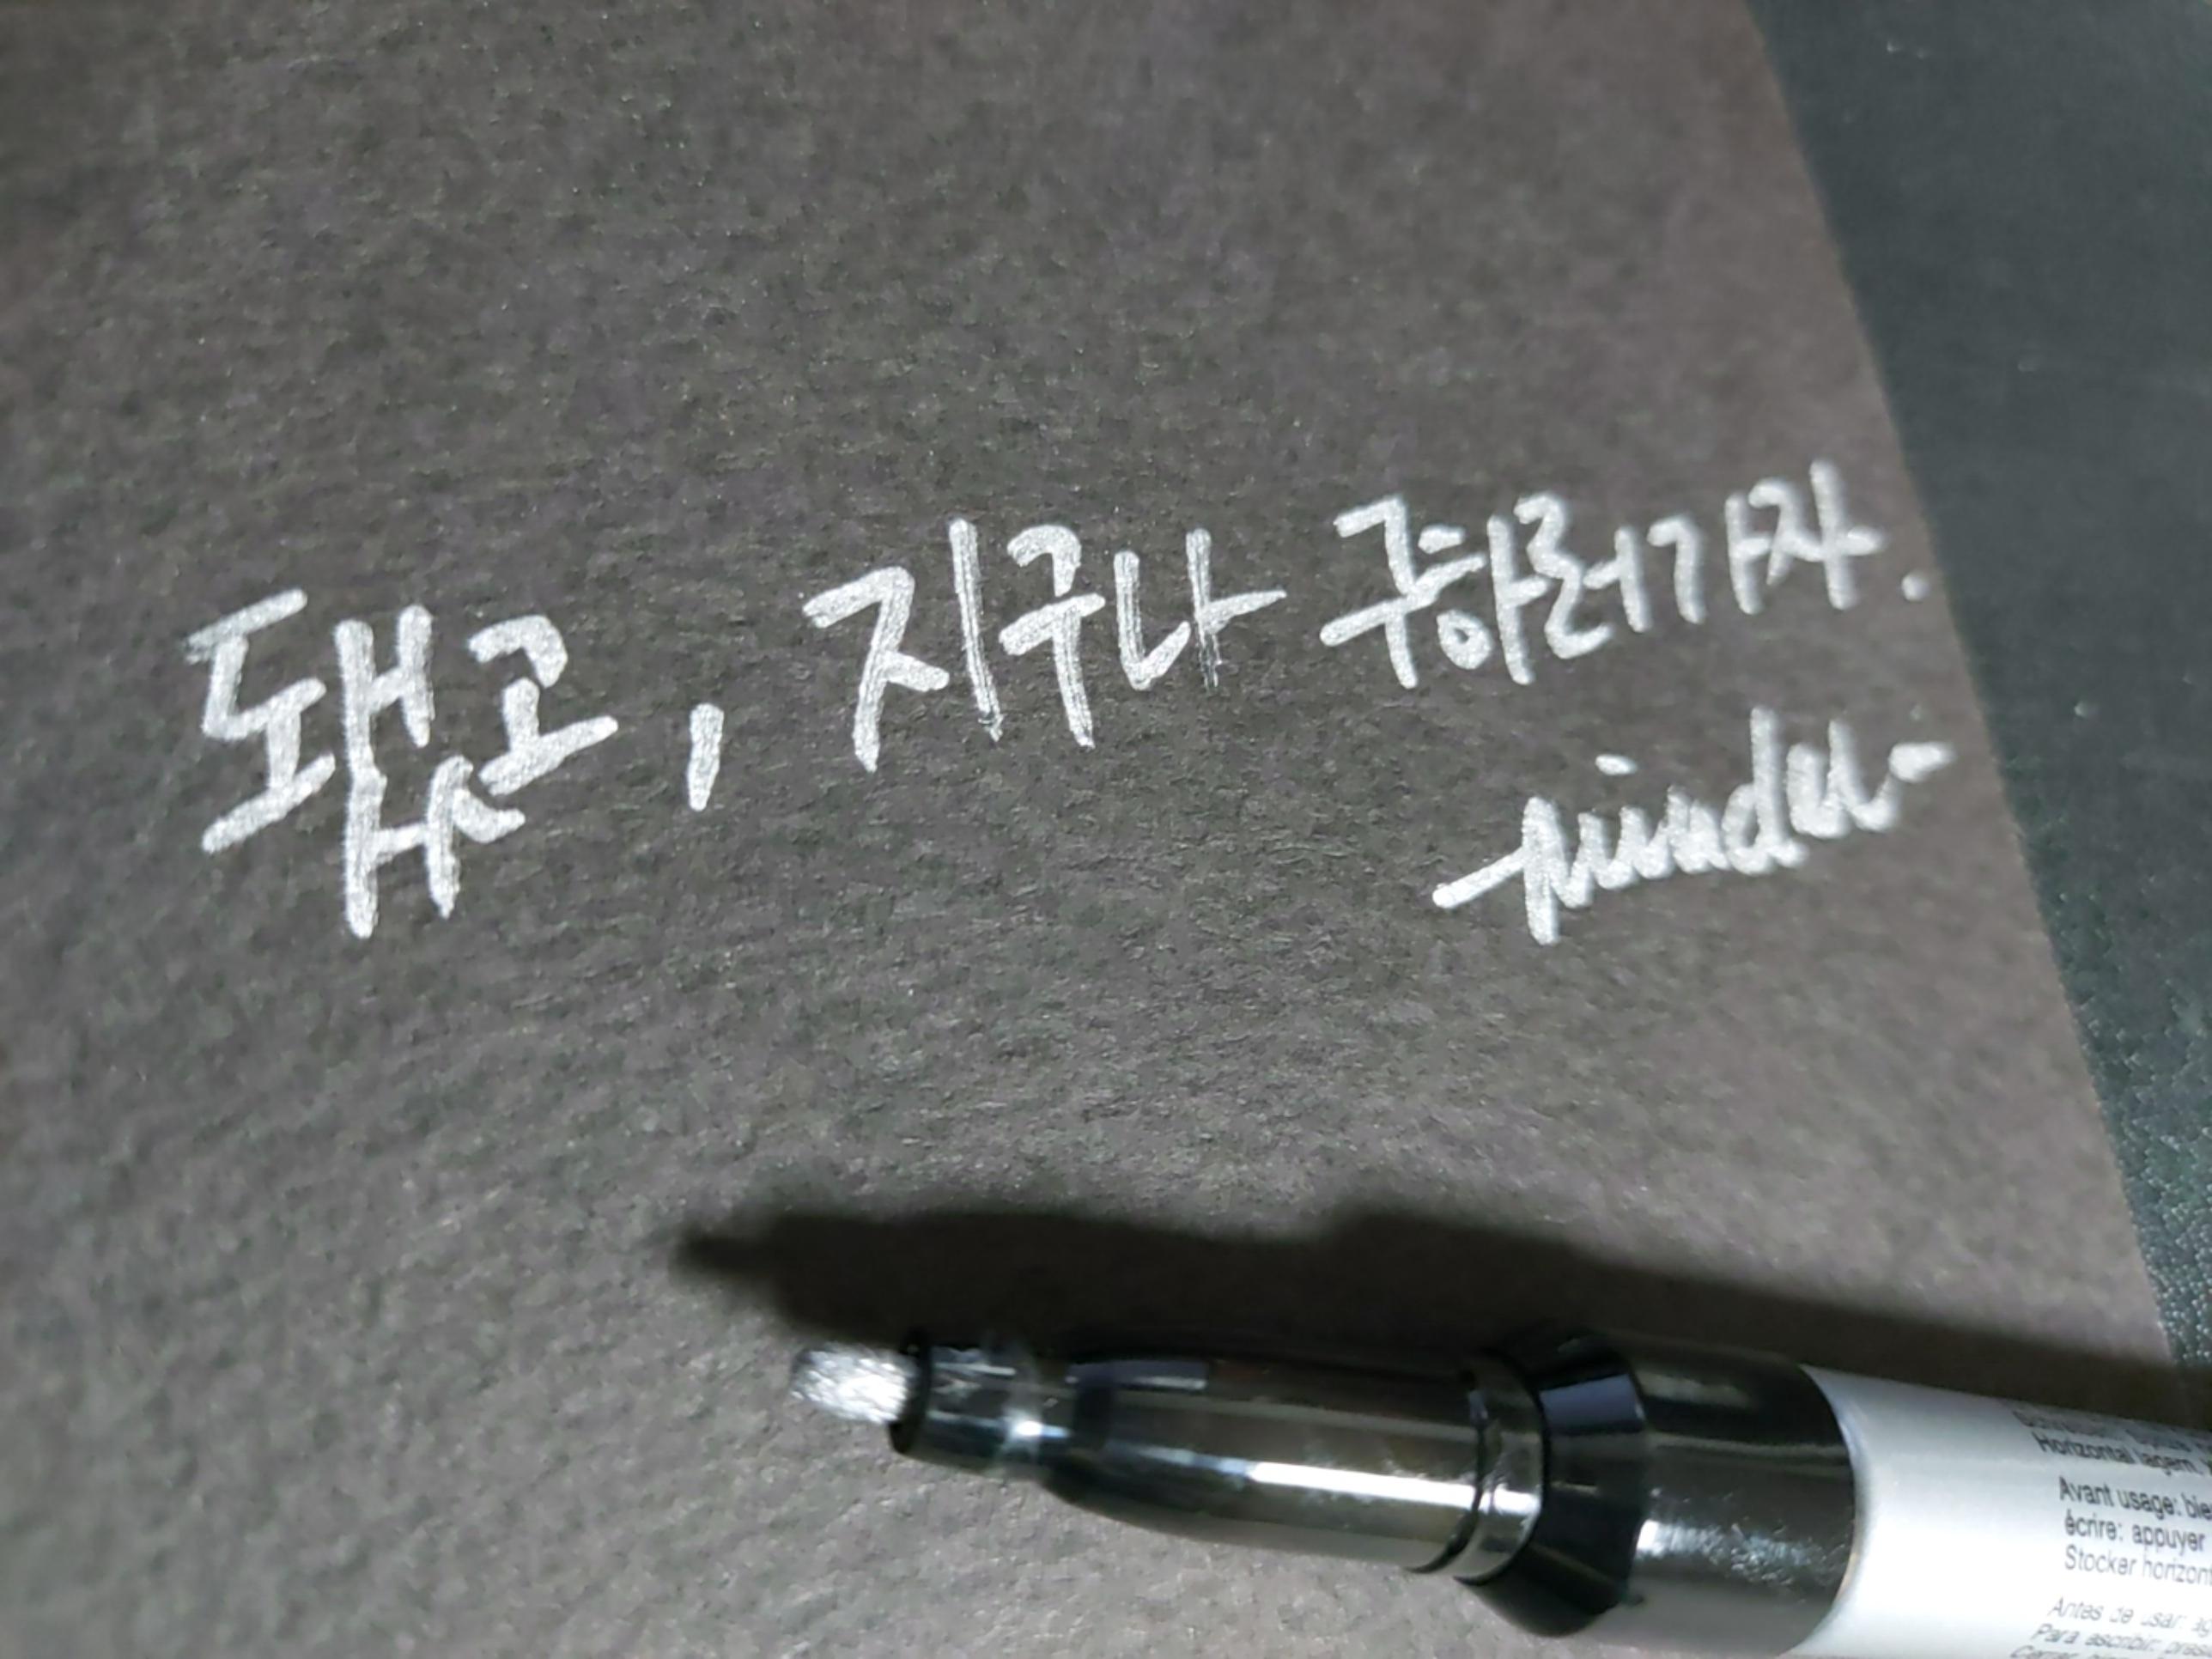 됐고, 지구나 구하러가자.
Horizontal
Avant usage:
écrire: appuyer
Stocker
Antes de usar:
Para escribir: